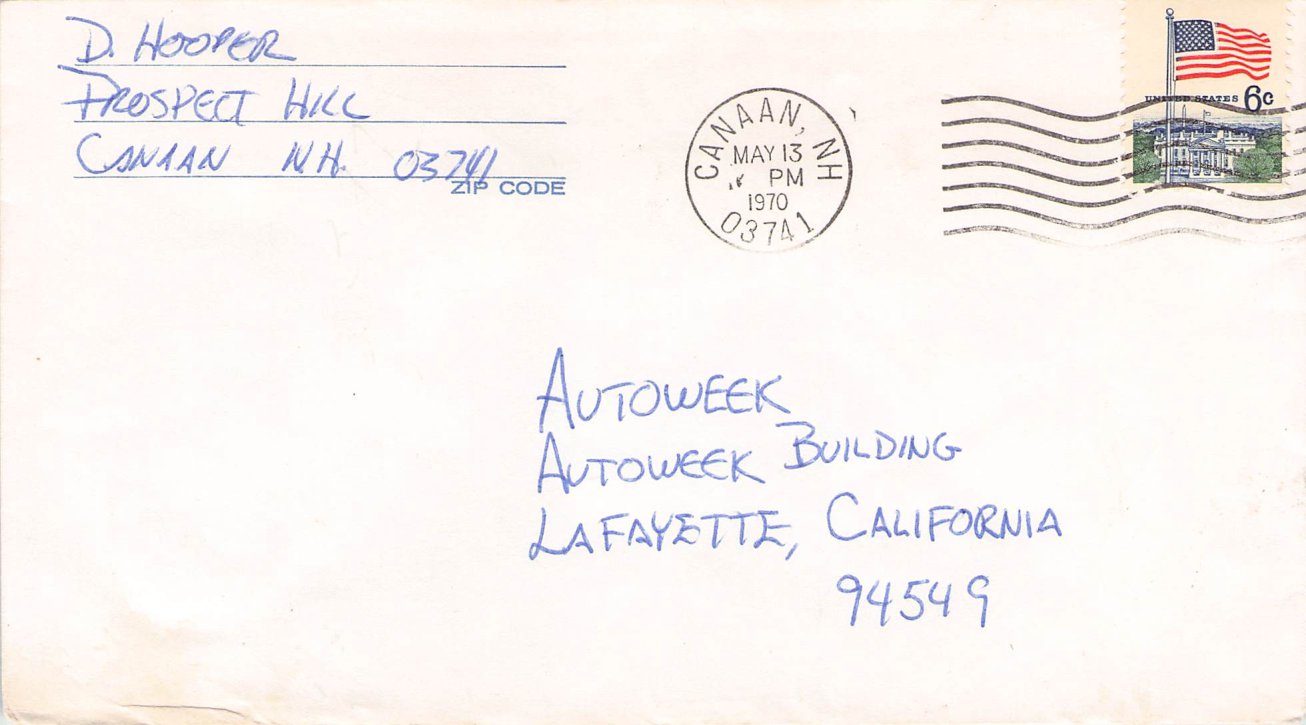 D. HOOPER
PROSPECT HILL
CANAAN N.H. 03741
ZIP CODE
CANAAN, NH
MAY 13
PM
1970
03741
UNITED STATES 6c
AUTOWEEK
AUTOWEEK BUILDING
LAFAYETTE, CALIFORNIA
94549